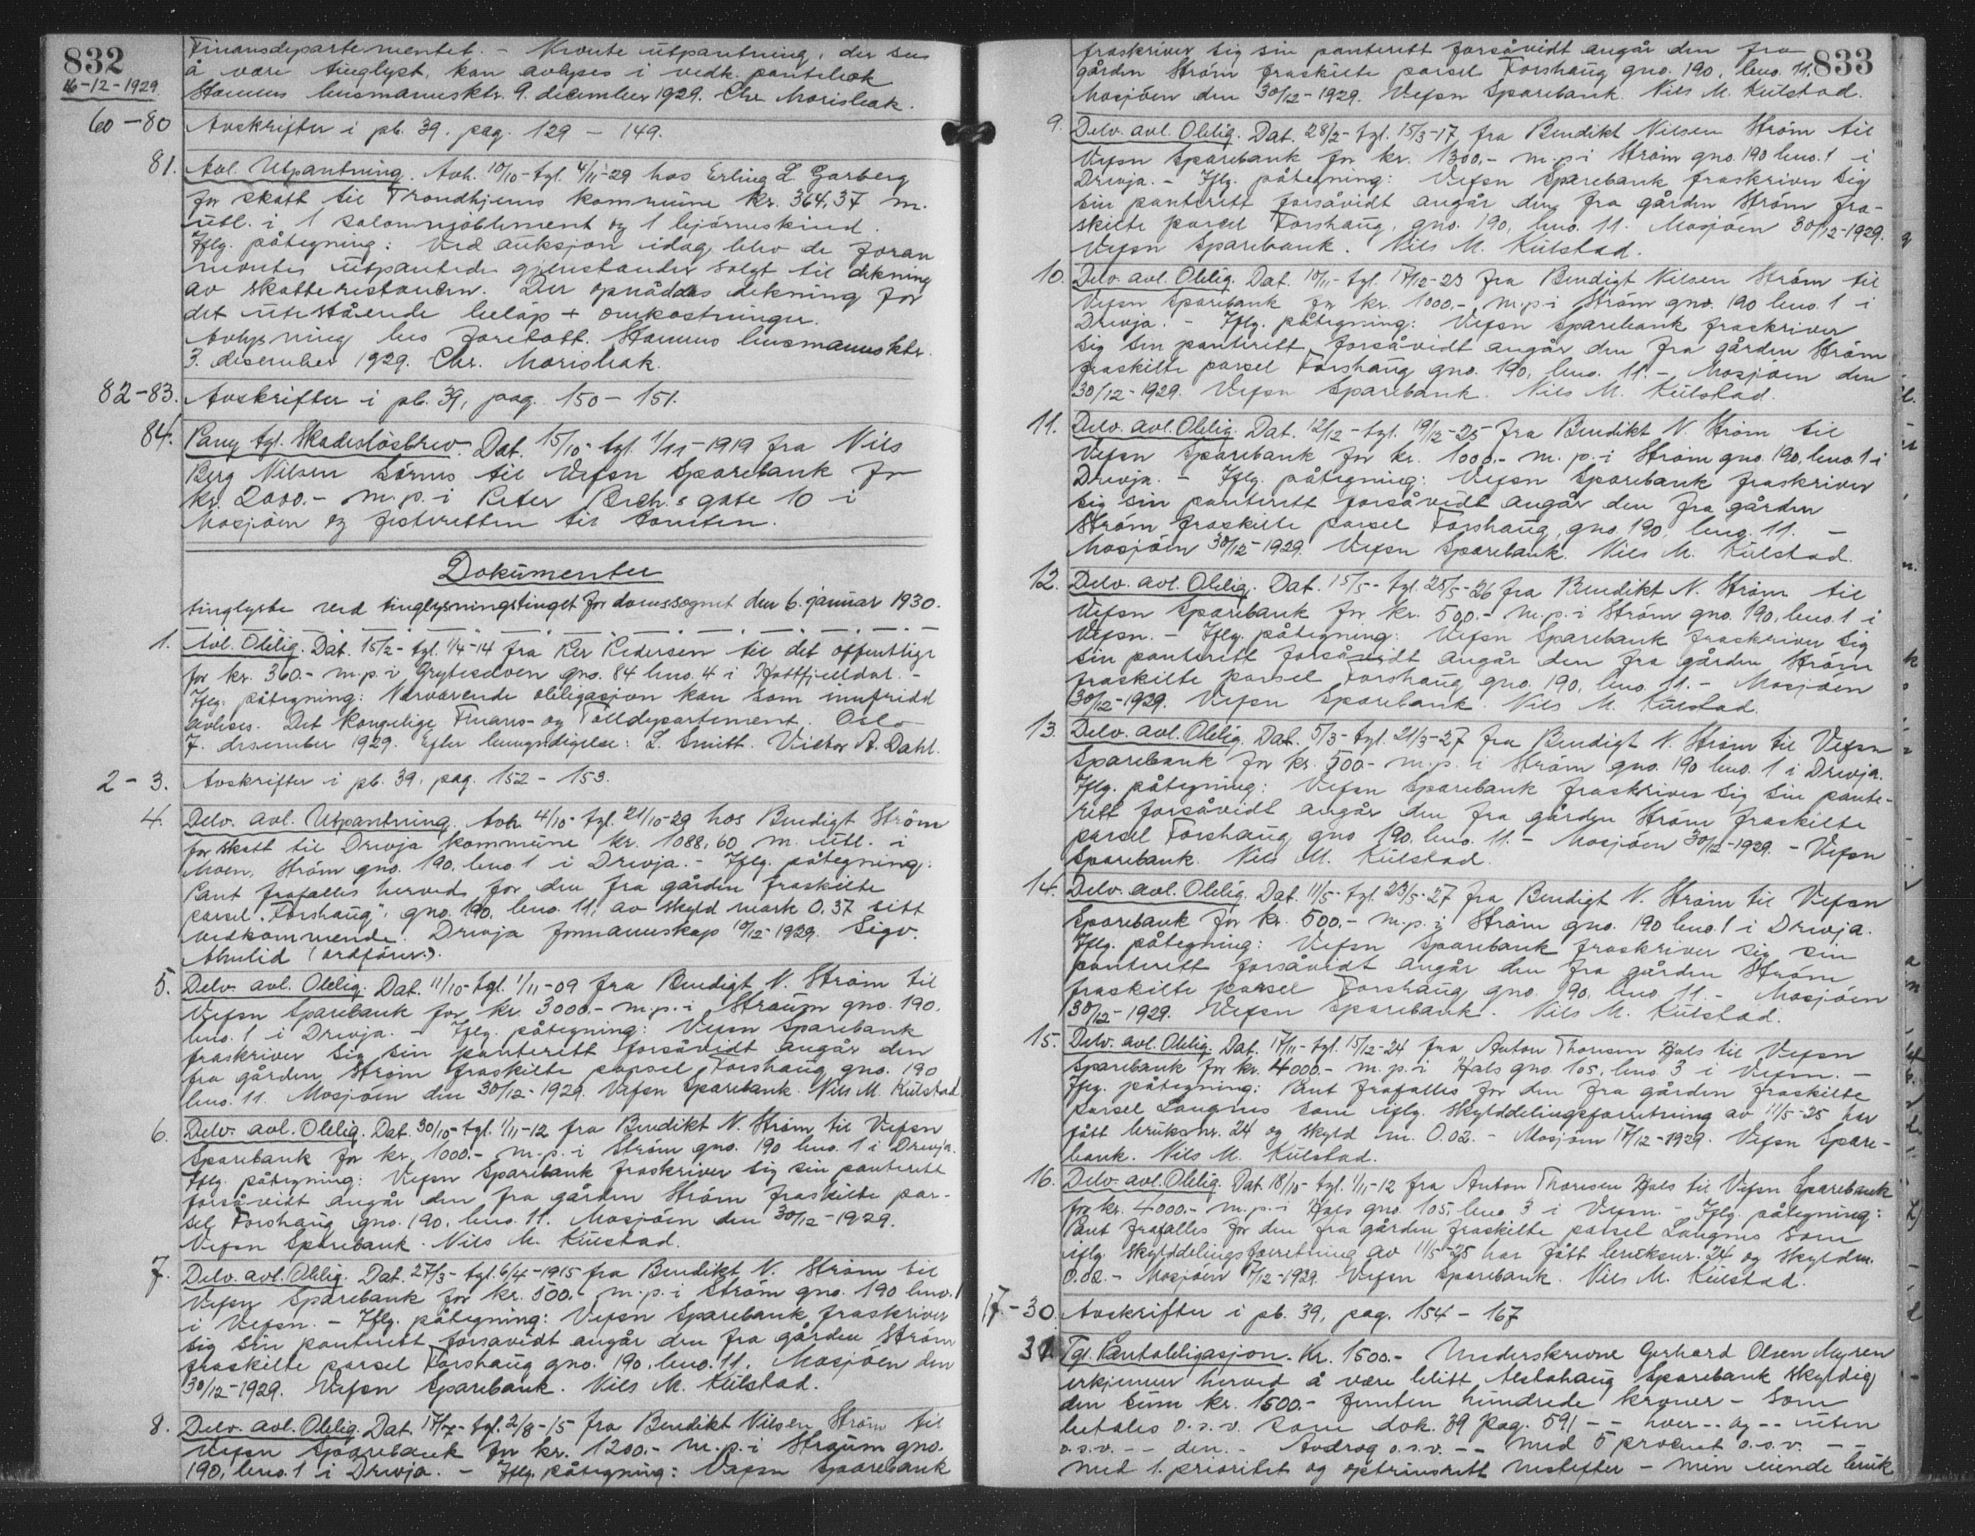 832
16-12-1929
Finansdepartementet. – Nevnte utpantning, der ses
å være tinglyst, kan avlyses i vedk. pantebok
Stamnes lensmannsktr. 9. december 1929. Chr. Morisbak.
60-80 Avskrifter i pb. 39. pag. 129 – 149.
81. Avl. Utpantning. Avh. 10/10- tgl. 4/11-29 hos Erling L. Garberg
for skatt til Trondhjems kommune kr. 364,37 m.
utl. i 1 salonmøblement og 1 bjørneskind.
Iflg. påtegning: Ved auksjon idag blev de foran
nevnte utpantede gjenstander solgt til dekning
av skatterestansen. Der opnåddes dekning for
det utestående beløp + omkostninger.
Avlysning bes foretatt. Stamnes lensmannsktr.
3. desember 1929. Chr. Morisbak.
82-83. Avskrifter i pb. 39, pag. 150 – 151.
84. Pany tgl. Skadesløsbrev. Dat. 15/10- tgl. 1/11-1919 fra Nils
Berg Nilsen Sørnes til Vefsn Sparebank for
kr. 2000.- m.p. i Peter Bech's gate 10 i
Mosjøen og festeretten til tomten.
Dokumenter
tinglyste ved tinglysningstinget for domssognet den 6. januar 1930.
1. Avl. Oblig. Dat. 15/2- tgl. 1/4-14 fra Per Pedersen til det offentlige
for kr. 360.- m.p. i Gryteselven gno. 84 bno. 4 i Hattfjelldal. –
Iflg. påtegning: Nærværende obligasjon kan som innfridd
avlyses. Det kongelige Finans- og Tolldepartement. Oslo
7. desember 1929. Efter bemyndigelse: L. Smitt. Victor A. Dahl.
2 – 3. Avskrifter i pb. 39. pag. 152 – 153.
4. Delv. avl. Utpantning. Avh. 4/10- tgl. 21/10-29 hos Bendigt Strøm
for skatt til Drevja kommune kr. 1088,60 m. utl. i
Moen, Strøm gno. 190, bno. 1 i Drevja. – Iflg. påtegning:
Pant frafalles herved for den fra gården fraskilte
parsel "Forshaug", gno. 190, bno. 11, av skyld mark 0.37 sitt
vedkommende. Drevja formannskap 10/12-1929. Sigv.
Almlid (ordfører).
5. Delv. avl. Oblig. Dat. 11/10- tgl. 1/11-09 fra Bendigt N. Strøm til
Vefsn Sparebank for kr. 3000.- m.p. i Straum gno. 190.
bno. 1 i Drevja. – Iflg. påtegning: Vefsn Sparebank
fraskriver sig sin panterett forsåvidt angår den
fra gården Strøm fraskilte parsel Forshaug gno. 190
bno. 11. Mosjøen den 30/12-1929. Vefsn Sparebank. Nils M. Kulstad
6. Delv. avl. Oblig. Dat. 30/10- tgl. 1/11-12 fra Bendikt N. Strøm til Vefsn
Sparebank for kr. 1000.- m.p. i Strøm gno. 190 bno. 1 i Drevja.
Iflg. påtegning: Vefsn Sparebank fraskriver sig sin panterett
forsåvidt angår den fra gården Strøm fraskilte par-
sel Forshaug gno. 190, bno. 11. Mosjøen den 30/12-1929.
Vefsn Sparebank. Nils M. Kulstad.
7. Delv. avl. Oblig. Dat. 27/3- tgl. 6/4-1915 fra Bendikt N. Strøm til
Vefsn Sparebank for kr. 500.- m.p. i Strøm gno. 190 bno. 1
i Vefsn. – Iflg. påtegning: Vefsn Sparebank fraskriver
sig sin panterett forsåvidt angår den fra gården Strøm
fraskilte parsel Forshaug gno. 190. bno. 11. Mosjøen den
30/12-1929. Vefsn Sparebank. Nils M. Kulstad.
8. Delv. avl. Oblig. Dat. 17/7- tgl. 2/8-15 fra Bendikt Nilsen Strøm til
Vefsn Sparebank for kr. 1200.- m.p. i Straum gno.
190, bno. 1 i Drevja. – Iflg. påtegning: Vefsn Sparebank
833
fraskriver sig sin panterett forsåvidt angår den fra
gården Strøm fraskilte parsel Forshaug gno. 190, bno. 11.
Mosjøen den 30/12-1929. Vefsn Sparebank. Nils M. Kulstad.
9. Delv. avl. Oblig. Dat. 28/2- tgl. 15/3-17 fra Bendikt Nilsen Strøm til
Vefsn Sparebank for kr. 1300.- m.p. i Strøm gno. 190 bno. 1 i
Drevja. – Iflg. påtegning: Vefsn Sparebank fraskriver sig
sin panterett forsåvidt angår den fra gården Strøm fra-
skilte parsel Forshaug, gno. 190, bno. 11. Mosjøen 30/12-1929.
Vefsn Sparebank. Nils M. Kulstad.
10. Delv. avl. Oblig. Dat. 10/11- tgl. 17/12-23 fra Bendigt Nilsen Strøm til
Vefsn Sparebank for kr. 1000.- m.p. i Strøm gno. 190 bno. 1 i
Drevja. – Iflg. påtegning: Vefsn Sparebank fraskriver
sig sin panterett forsåvidt angår den fra gården Strøm
fraskilte parsel Forshaug gno. 190, bno. 11. – Mosjøen den
30/12-1929. Vefsn Sparebank. Nils M. Kulstad.
11. Delv. avl. Oblig. Dat. 12/12- tgl. 19/12-25 fra Bendikt N. Strøm til
Vefsn Sparebank for kr. 1000.- m.p. i Strøm gno. 190, bno. 1 i
Drevja. – Iflg. påtegning: Vefsn Sparebank fraskriver
sig sin panterett forsåvidt angår den fra gården
Strøm fraskilte parsel Forshaug, gno. 190, bno. 11. –
Mosjøen 30/12-1929. Vefsn Sparebank. Nils M. Kulstad.
12. Delv. avl. Oblig. Dat. 15/5- tgl. 28/5-26 fra Bendikt N. Strøm til
Vefsn Sparebank for kr. 500.- m.p. i Strøm gno. 190, bno. 1 i
Vefsn. – Iflg. påtegning: Vefsn Sparebank fraskriver sig
sin panterett forsåvidt angår den fra gården Strøm
fraskilte parsel Forshaug gno. 190, bno. 11. – Mosjøen
30/12-1929. Vefsn Sparebank. Nils M. Kulstad.
13. Delv. avl. Oblig. Dat. 5/3- tgl. 21/3-27 fra Bendigt N. Strøm til Vefsn
Sparebank for kr. 500.- m.p. i Strøm gno. 190 bno. 1 i Drevja.
Iflg. påtegning: Vefsn Sparebank fraskriver sig sin pante-
rett forsåvidt angår den fra gården Strøm fraskilte
parsel Forshaug gno. 190, bno. 11. – Mosjøen 30/12-1929. – Vefsn
Sparebank. Nils M. Kulstad.
14. Delv. avl. Oblig. Dat. 11/5- tgl. 23/5-27 fra Bendigt N. Strøm til Vefsn
Sparebank for kr. 500.- m.p. i Strøm gno. 190 bno. 1 i Drevja.
Iflg. påtegning: Vefsn Sparebank fraskriver sig sin
panterett forsåvidt angår den fra gården Strøm
fraskilte parsel Forshaug gno. 190, bno. 11. – Mosjøen
30/12-1929. Vefsn Sparebank. Nils M. Kulstad.
15. Delv. avl. Oblig. Dat. 17/11- tgl. 15/12-24 fra Anton Thoresen Hals til Vefsn
Sparebank for kr. 4000.- m.p. i Hals gno. 105, bno. 3 i Vefsn. –
Iflg. påtegning: Pant frafalles for den fra gården fraskilte
parsel Langnes som iflg. skylddelingsforretning av 11/5-25 har
fått bruksnr. 24 og skyld m. 0.02. – Mosjøen 17/12-1929. Vefsn Spare-
bank. Nils M. Kulstad.
16. Delv. avl. Oblig. Dat. 18/10- tgl. 1/11-12 fra Anton Thoresen Hals til Vefsn Sparebank
for kr. 4000.- m.p. i Hals gno. 105, bno. 3 i Vefsn. – Iflg. påtegning:
Pant frafalles for den fra gården fraskilte parsel Langnes som
iflg. skylddelingsforretning av 11/5-25 har fått bruksnr. 24 og skyld m.
0.02. – Mosjøen 17/12-1929. Vefsn Sparebank. Nils M. Kulstad.
17.-30. Avskrifter i pb. 39, pag. 154 – 167
31. Tgl. Pantobligasjon. Kr. 1500.- Underskrevne Gerhard Olsen Myren
erkjenner herved å være blitt Alstahaug Sparebank skyldig
den sum kr. 1500.- femten hundrede kroner – som
betales o.s.v. som dok. 39 pag. 591 – – hver – – og – – uten
o.s.v. – – den. – Avdrag o.s.v. – – med 5 procent o.s.v. – –
med 1. prioritet og optrinsrett nestefter – min eiende bruk